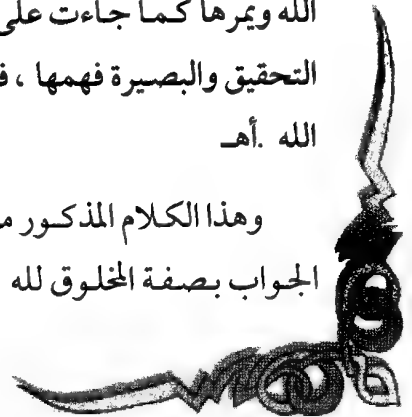 الله ويمرها كما جاءت على
التحقيق والبصيرة فهمها ، ف
الله .أهـ
وهذا الكلام المذكور م
الجواب بصفة المخلوق لله